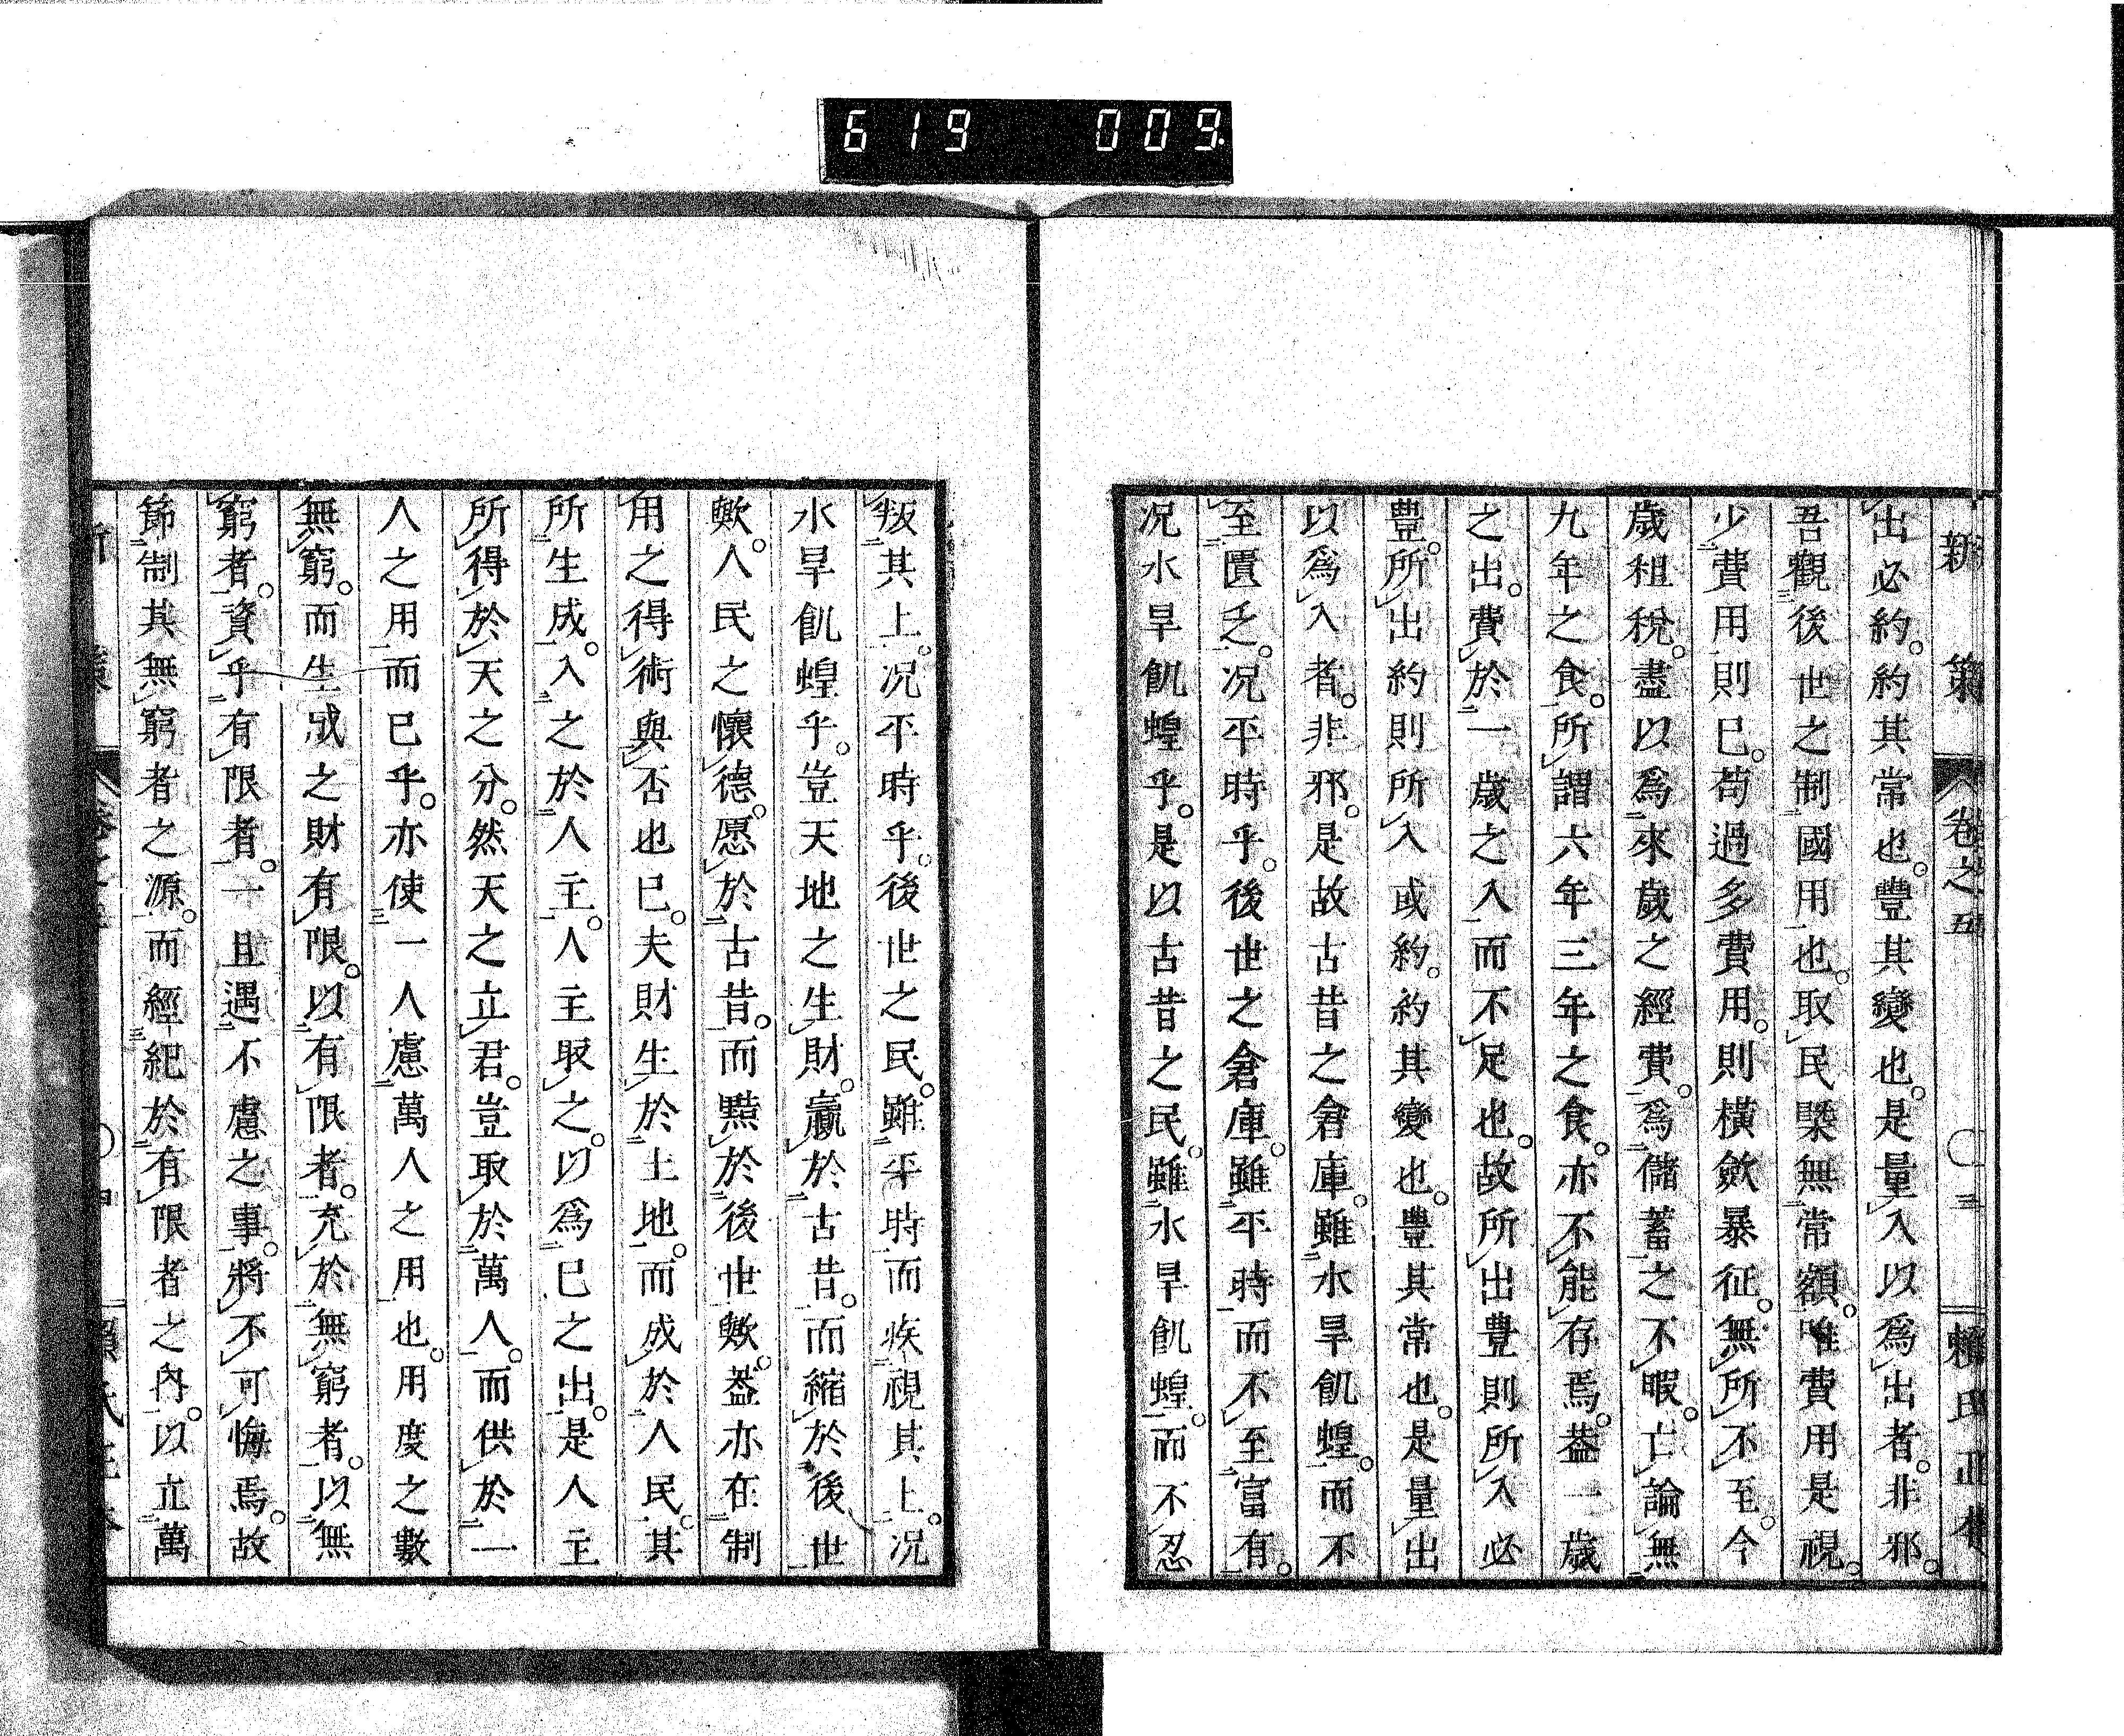 619 009
新策 卷之五 ○三 賴氏正本
出必約。約其常也。豐其變也。是量入以爲出者。非邪。
吾觀後世之制國用也。取民槩無常額。唯費用是視。
少費用則已。苟過多費用。則橫斂暴征。無所不至。今
歲租稅。盡以爲來歲之經費。爲儲蓄之不暇。亡論無
九年之食。所謂六年三年之食。亦不能存焉。蓋一歲
之出。費於一歲之入而不足也。故所出豐則所入必
豐。所出約則所入或約。約其變也。豐其常也。是量出
以爲入者。非邪。是故古昔之倉庫。雖水旱飢蝗。而不
至匱乏。况平時乎。後世之倉庫。雖平時而不至富有。
况水旱飢蝗乎。是以古昔之民。雖水旱飢蝗。而不忍
叛其上。况平時乎。後世之民。雖平時而疾視其上。况
水旱飢蝗乎。豈天地之生財。贏於古昔。而縮於後世
歟。人民之懷德。愿於古昔。而黠於後世歟。蓋亦在制
用之得術與否也已。夫財生於土地。而成於人民。其
所生成。入之於人主。人主取之。以爲已之出。是人主
所得於天之分。然天之立君。豈取於萬人。而供於一
人之用而已乎。亦使一人慮萬人之用也。用度之數
無窮。而生成之財有限。以有限者。充於無窮者。以無
窮者。資乎有限者。一旦遇不慮之事。將不可悔焉。故
節制其無窮者之源。而經紀於有限者之內。以立萬